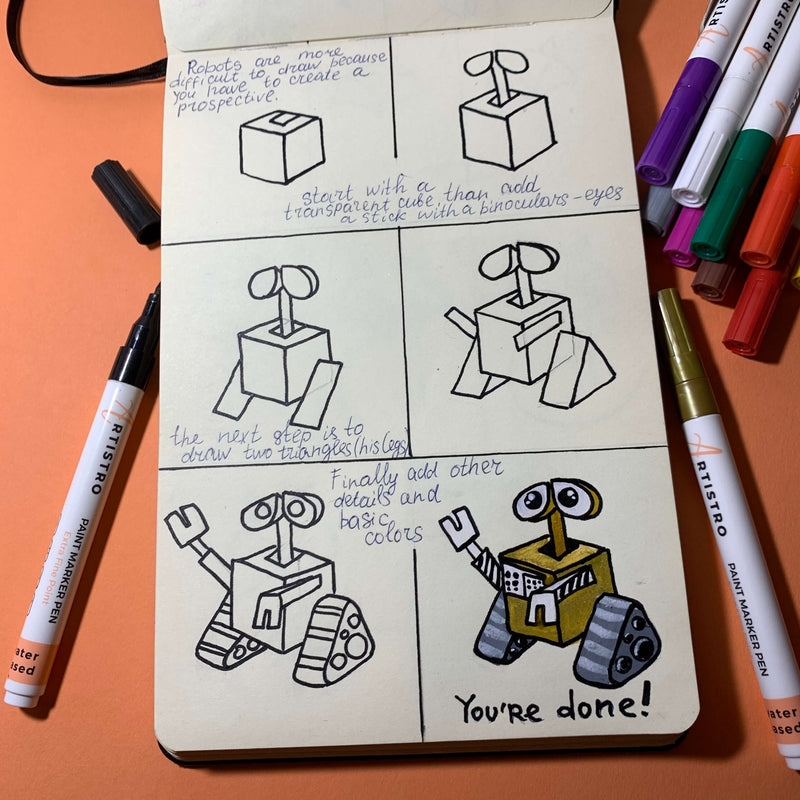 Robots are more
difficult to draw because
you have to create a
prospective.
start with a
transparent cube than add
a stick with a binoculars - eyes
the next step is to
draw two triangles (his legs)
Finally add other
details and
basic
colors
You're done!
ARTISTRO
PAINT MARKER PEN
Extra Fine Point
ater
ased
ARTISTRO
PAINT MARKER PEN
ater
ased
RTISTRO
RTISTRO